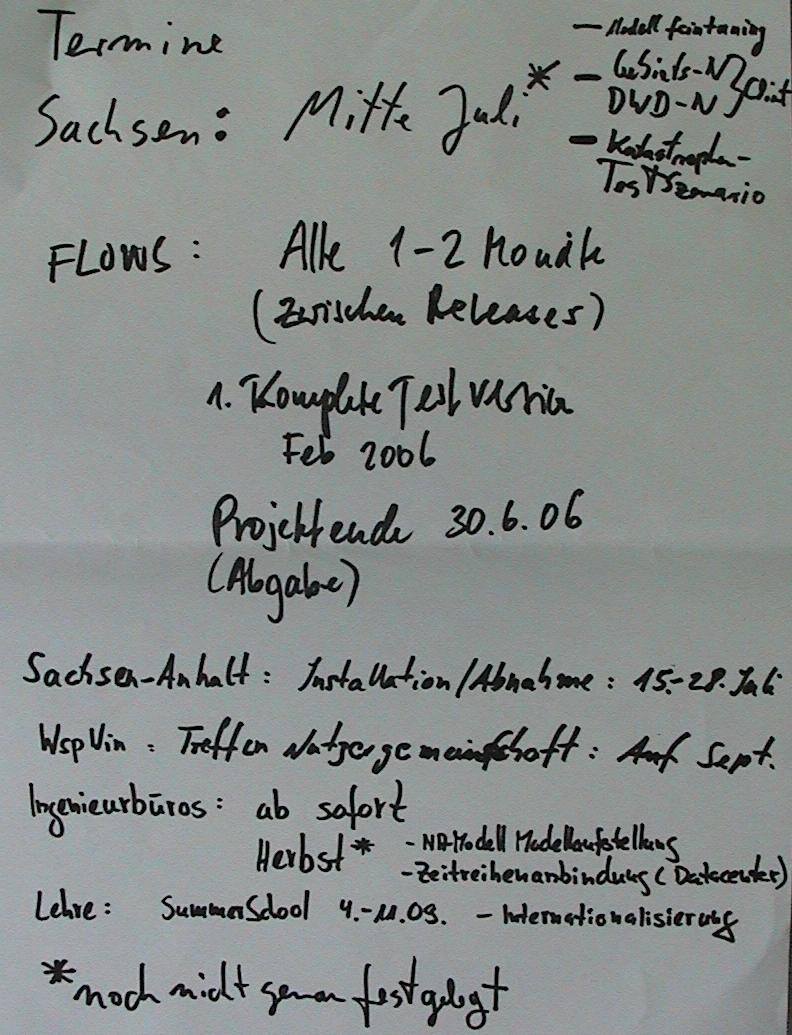 Termine
Sachsen: Mitte Juli*
- Modell feintuning
- Gebiets-N
DWD-N
- Katastrophen-
Testszenario
FLOWS: Alle 1-2 Monate
(zwischen Releases)
1. Komplete Testversion
Feb 2006
Projektende 30.6.06
(Abgabe)
Sachsen-Anhalt: Installation/Abnahme: 15.-28. Juli
WspWin: Treffen Nutzergemeinschaft: Anf Sept.
Ingenieurbüros: ab sofort
Herbst* - NA-Modell Modellaufstellung
- Zeitreihenanbindung (Datacenter)
Lehre: SummerSchool 4.-11.09. - Internationalisierung
*noch nicht genau festgelegt